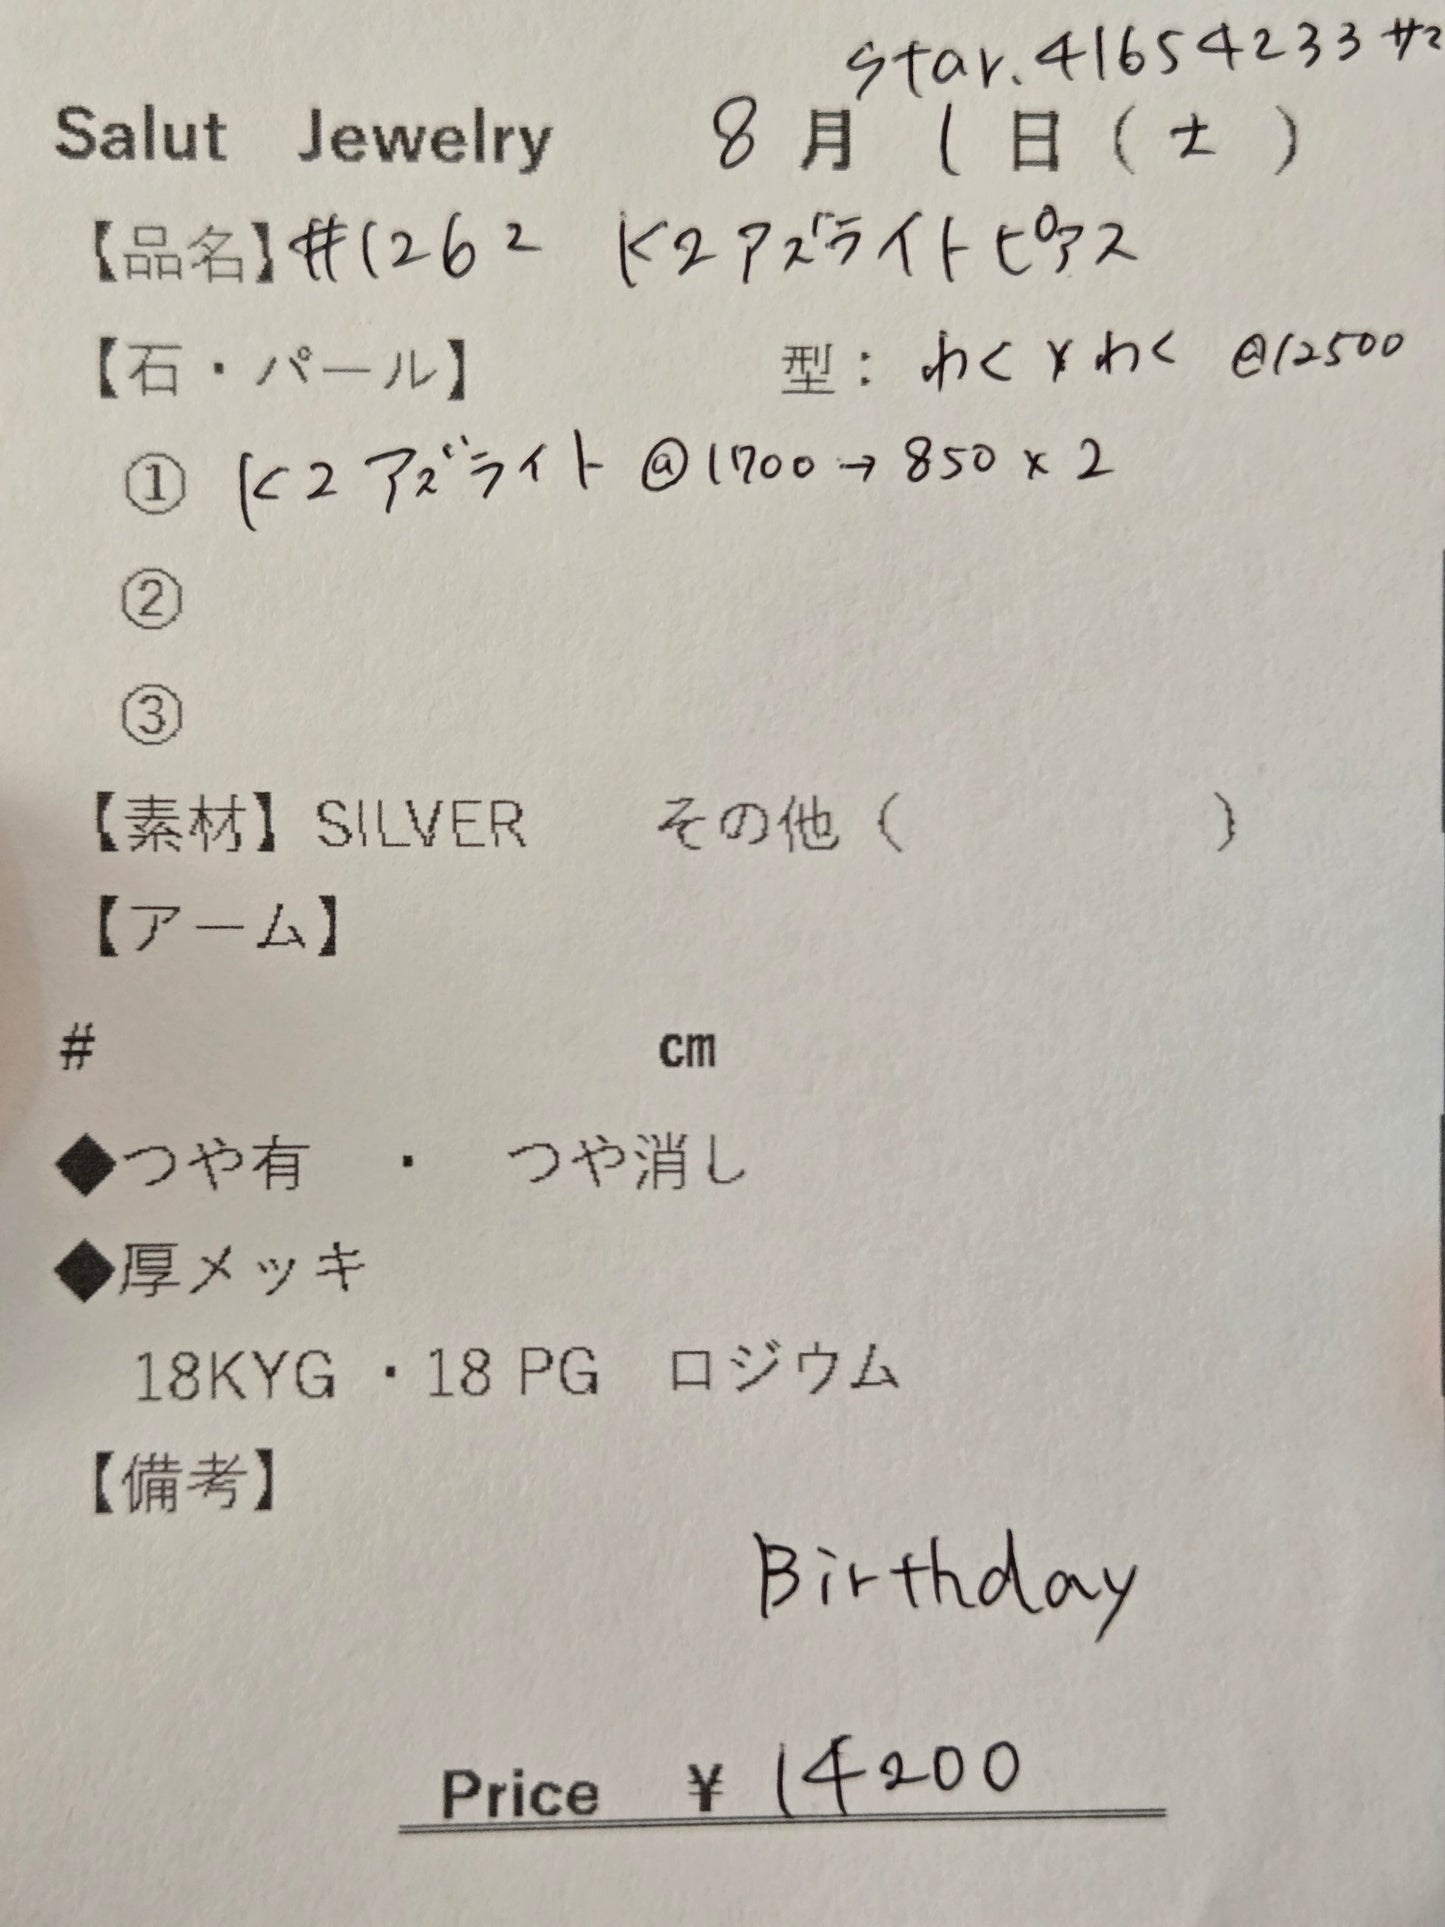 star.41654233 サマ
Salut Jewelry 8月 1日(土)
【品名】#1262 K2アズライトピアス
【石・パール】 型: わく×わく @12500
① K2アズライト @1700→850×2
②
③
【素材】SILVER その他( )
【アーム】
# cm
◆つや有 ・ つや消し
◆厚メッキ
18KYG ・18 PG ロジウム
【備考】
Birthday
Price ¥ 14200